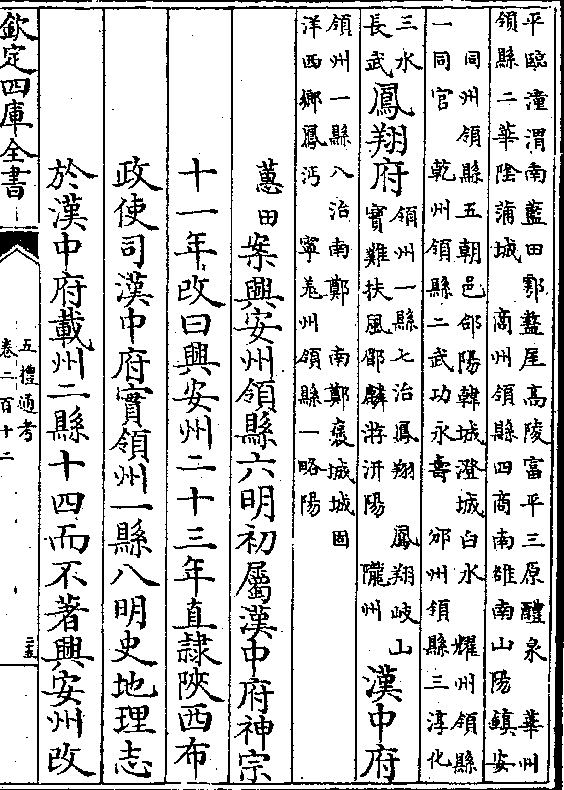 平臨潼渭南藍田鄠盩厔高陵富平三原醴泉 華州
領縣二華陰蒲城 商州領縣四商南雒南山陽鎮安
同州領縣五朝邑郃陽韓城澄城白水 耀州領縣
一同官 乾州領縣二武功永壽 邠州領縣三淳化
三水
長武
鳳翔府
領州一縣七治鳳翔 鳳翔岐山
寶雞扶風郿麟游汧陽 隴州
漢中府
領州一縣八治南鄭 南鄭褒城城固
洋西鄉鳳沔 寧羌州領縣一略陽
蕙田案興安州領縣六明初屬漢中府神宗
十一年改曰興安州二十三年直隸陝西布
政使司漢中府實領州一縣八明史地理志
於漢中府載州二縣十四而不著興安州改
欽定四庫全書
五禮通考
卷二百十二